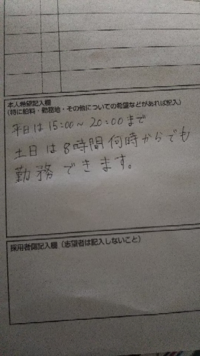 本人希望記入欄
(特に給料・勤務地・その他についての希望などがあれば記入)
平日は15:00～20:00まで
土日は8時間何時からでも
勤務できます。
採用者側記入欄(志望者は記入しないこと)